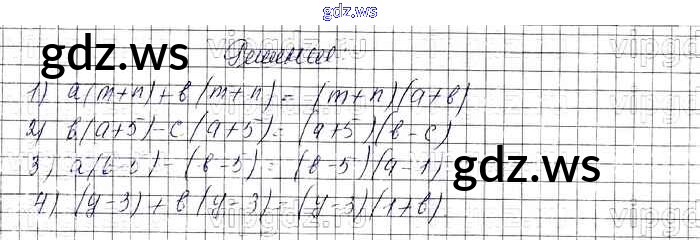 gdz.ws
gdz.ws
Решение
1) a(m+n)+в(m+n)=(m+n)(a+в)
2) в(a+5)-c(a+5)=(a+5)(в-c)
3) a(в-5)-(в-5)=(в-5)(a-1)
4) (y-3)+в(y-3)=(y-3)(1+в)
gdz.ws